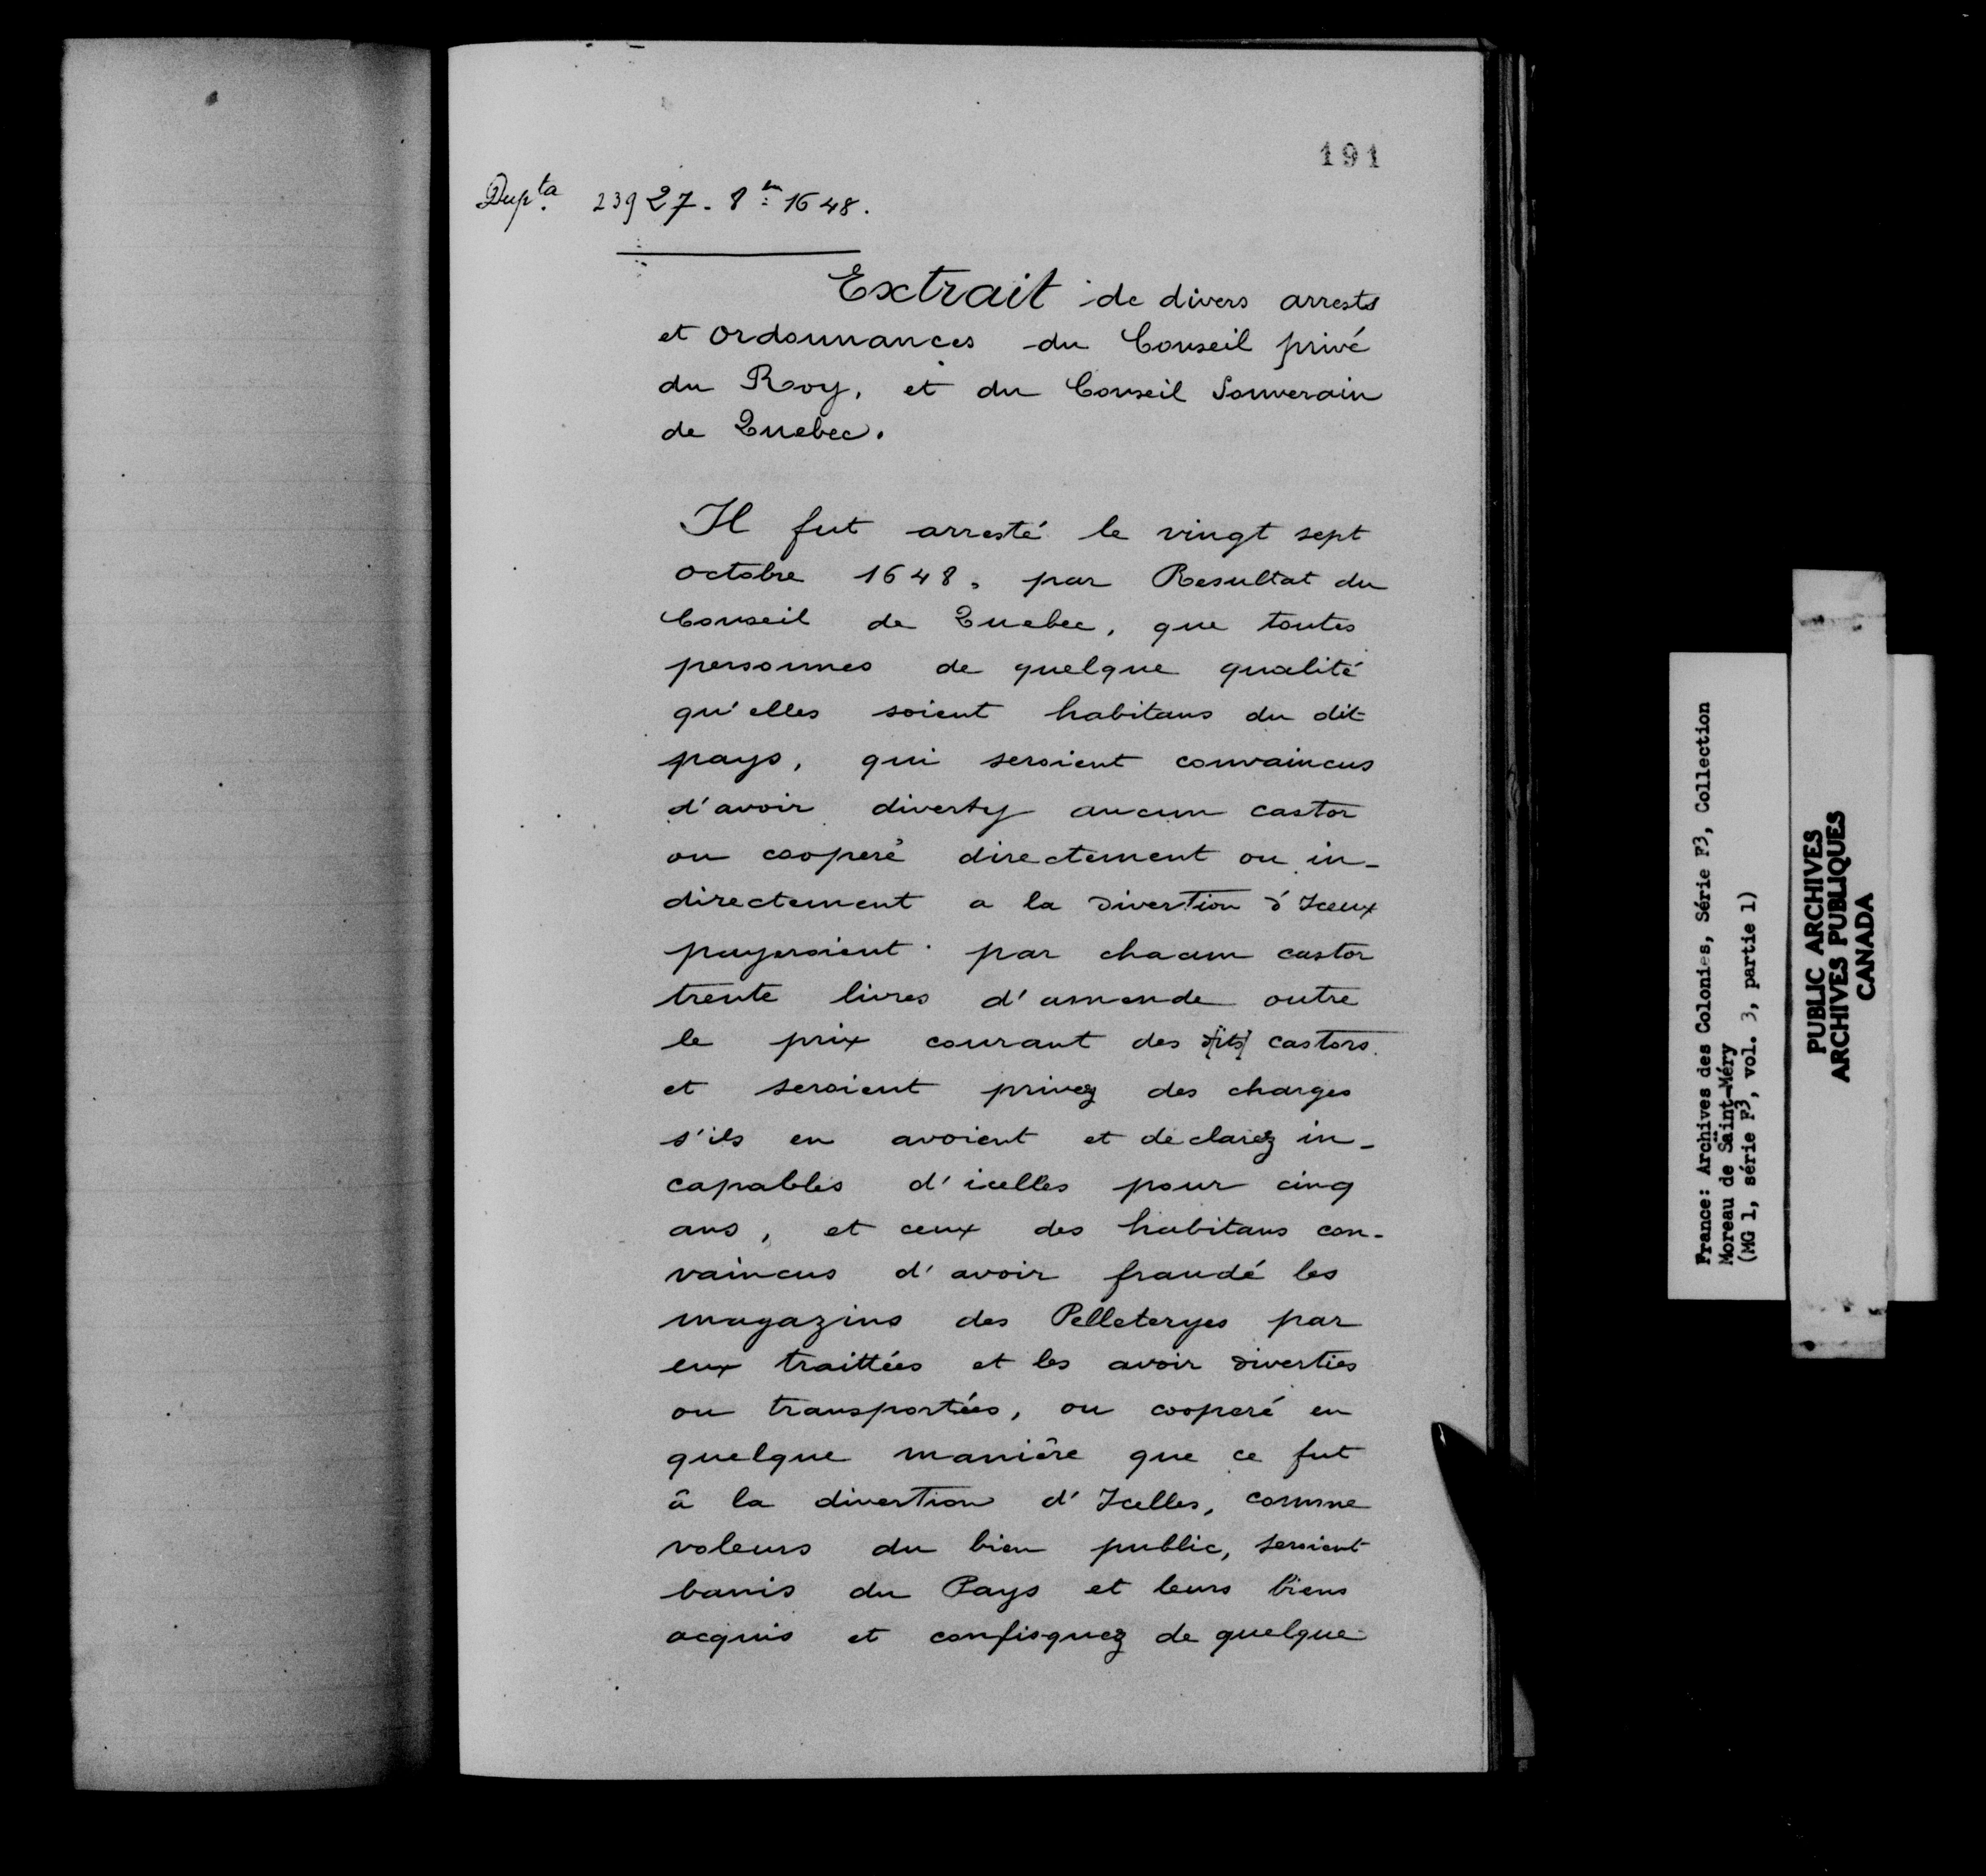 191
Dupta 239 27. 8bre 1648.
Extrait de divers arrests
et ordonnances du Conseil privé
du Roy, et du Conseil Souverain
de Quebec.
Il fut arresté le vingt sept
octobre 1648, par Resultat du
Conseil de Quebec, que toutes
personnes de quelque qualité
qu'elles soient habitans du dit
pays, qui seroient convaincus
d'avoir diverty aucun castor
ou cooperé directement ou in-
directement a la divertion d'Iceux
payeroient par chacun castor
trente livres d'amende outre
le prix courant des dits castors
et seroient privez des charges
s'ils en avoient et declarez in-
capables d'icelles pour cinq
ans, et ceux des habitans con-
vaincus d'avoir fraudé les
magazins des Pelleteryes par
eux traittées et les avoir diverties
ou transportées, ou cooperé en
quelque maniêre que ce fut
â la divertion d'Icelles, comme
voleurs du bien public, seroient
banis du Pays et leurs biens
acquis et confisquez de quelque
France: Archives des Colonies, Série F3, Collection
Moreau de Saint-Méry
(MG 1, série F3, vol. 3, partie 1)
PUBLIC ARCHIVES
ARCHIVES PUBLIQUES
CANADA